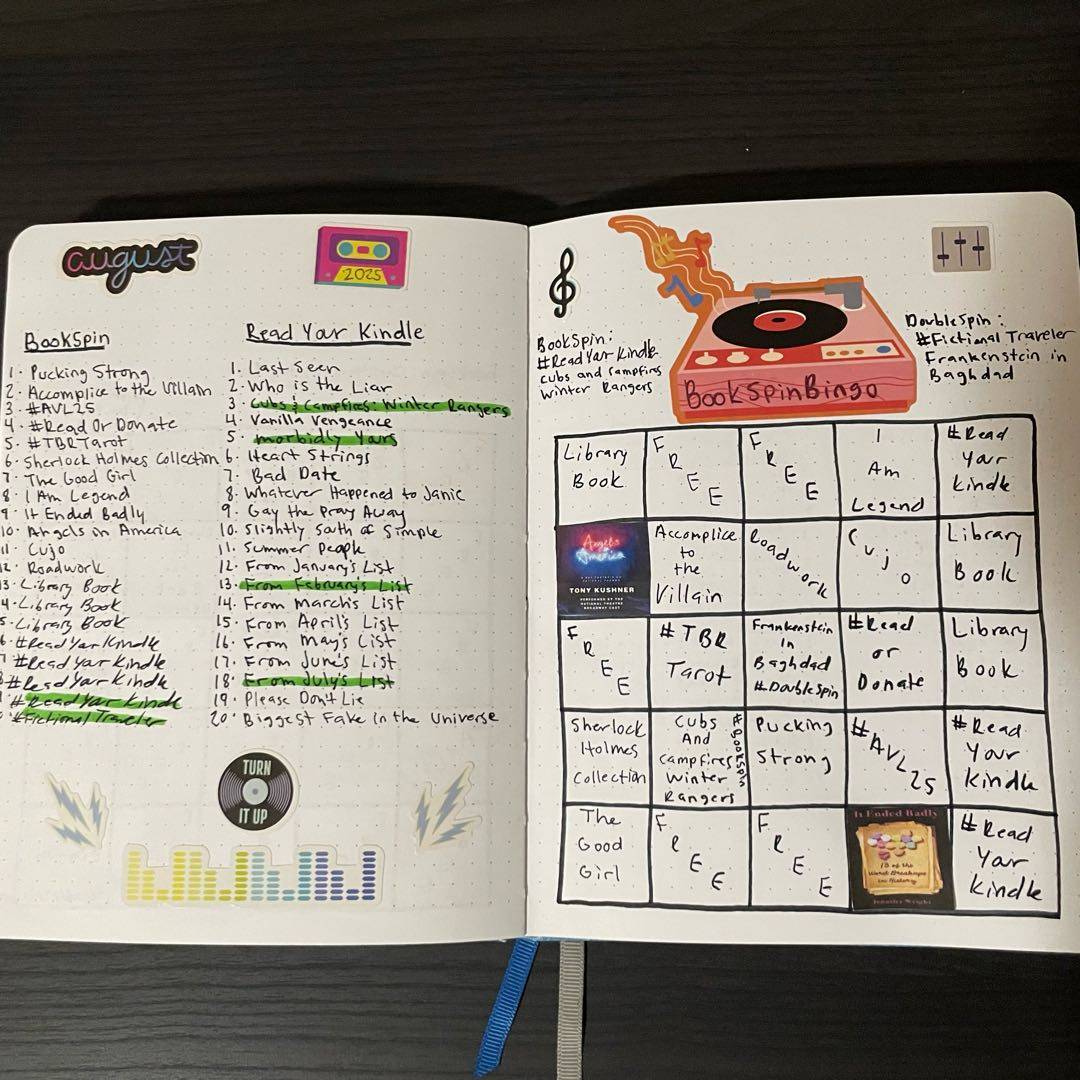 august
2025
BookSpin
1. Pucking Strong
2. Accomplice to the Villain
3. #AVL25
4. #Read Or Donate
5. #TBRTarot
6. Sherlock Holmes Collection
7. The Good Girl
8. I Am Legend
9. It Ended Badly
10. Angels in America
11. Cujo
12. Roadwork
13. Library Book
4. Library Book
5. Library Book
6. #ReadYourKindle
7 #ReadYourKindle
8 #ReadYourKindle
#ReadYourKindle
0 #FictionalTraveler
Read Your Kindle
1. Last Seen
2. Who is the Liar
3. Cubs & Campfires: Winter Rangers
4. Vanilla Vengeance
5. Morbidly Yours
6. Heart Strings
7. Bad Date
8. Whatever Happened to Janie
9. Gay the Pray Away
10. Slightly South of Simple
11. Summer People
12. From January's List
13. From February's List
14. From March's List
15. From April's List
16. From May's List
17. From June's List
18. From July's List
19. Please Don't Lie
20. Biggest Fake in the Universe
TURN
IT UP
BookSpin:
#ReadYourKindle
Cubs and Campfires
Winter Rangers
BookSpinBingo
DoubleSpin:
#Fictional Traveler
Frankenstein in
Baghdad
Library
Book
FREE
FREE
I
Am
Legend
#Read
Your
Kindle
Angels
in America
TONY KUSHNER
PERFORMED BY THE
NATIONAL THEATRE
BROADWAY CAST
Accomplice
to
the
Villain
Roadwork
Cujo
Library
Book
FREE
#TBR
Tarot
Frankenstein
In
Baghdad
#DoubleSpin
#Read
or
Donate
Library
Book
Sherlock
Holmes
Collection
Cubs
And
Campfires
Winter
Rangers
#BookSpin
Pucking
Strong
#AVL25
#Read
Your
Kindle
The
Good
Girl
FREE
FREE
It Ended Badly
13 of the
Worst Breakups
in History
Jennifer Wright
#Read
Your
Kindle